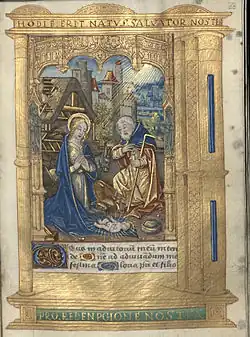 HODIE ERIT NATVS SALVATOR NOSTE
Deus in adiutoriũ meũ inten
de Dñe ad adiuuãdum me
festina Gloria pri et filio
PRO REDENPCIONE NOSTRA